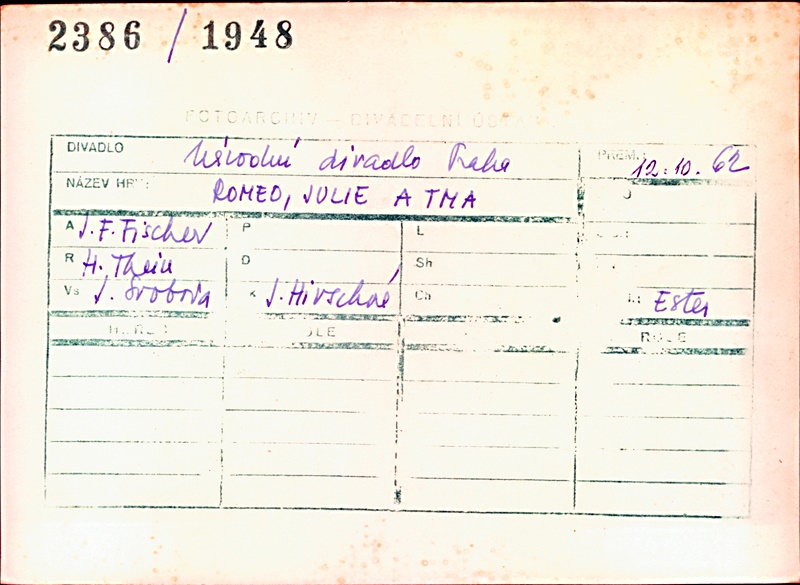 2386 / 1948
FOTOARCHIV — DIVADELNÍ ÚSTA
DIVADLO Národní divadlo Praha PREM.: 12.10.62
NÁZEV HRY: ROMEO, JULIE A TMA
A J. F. Fischer P L
R H. Thein D Sh
Vs J. Svoboda K J. Hirschné Ch Ester
ROLE